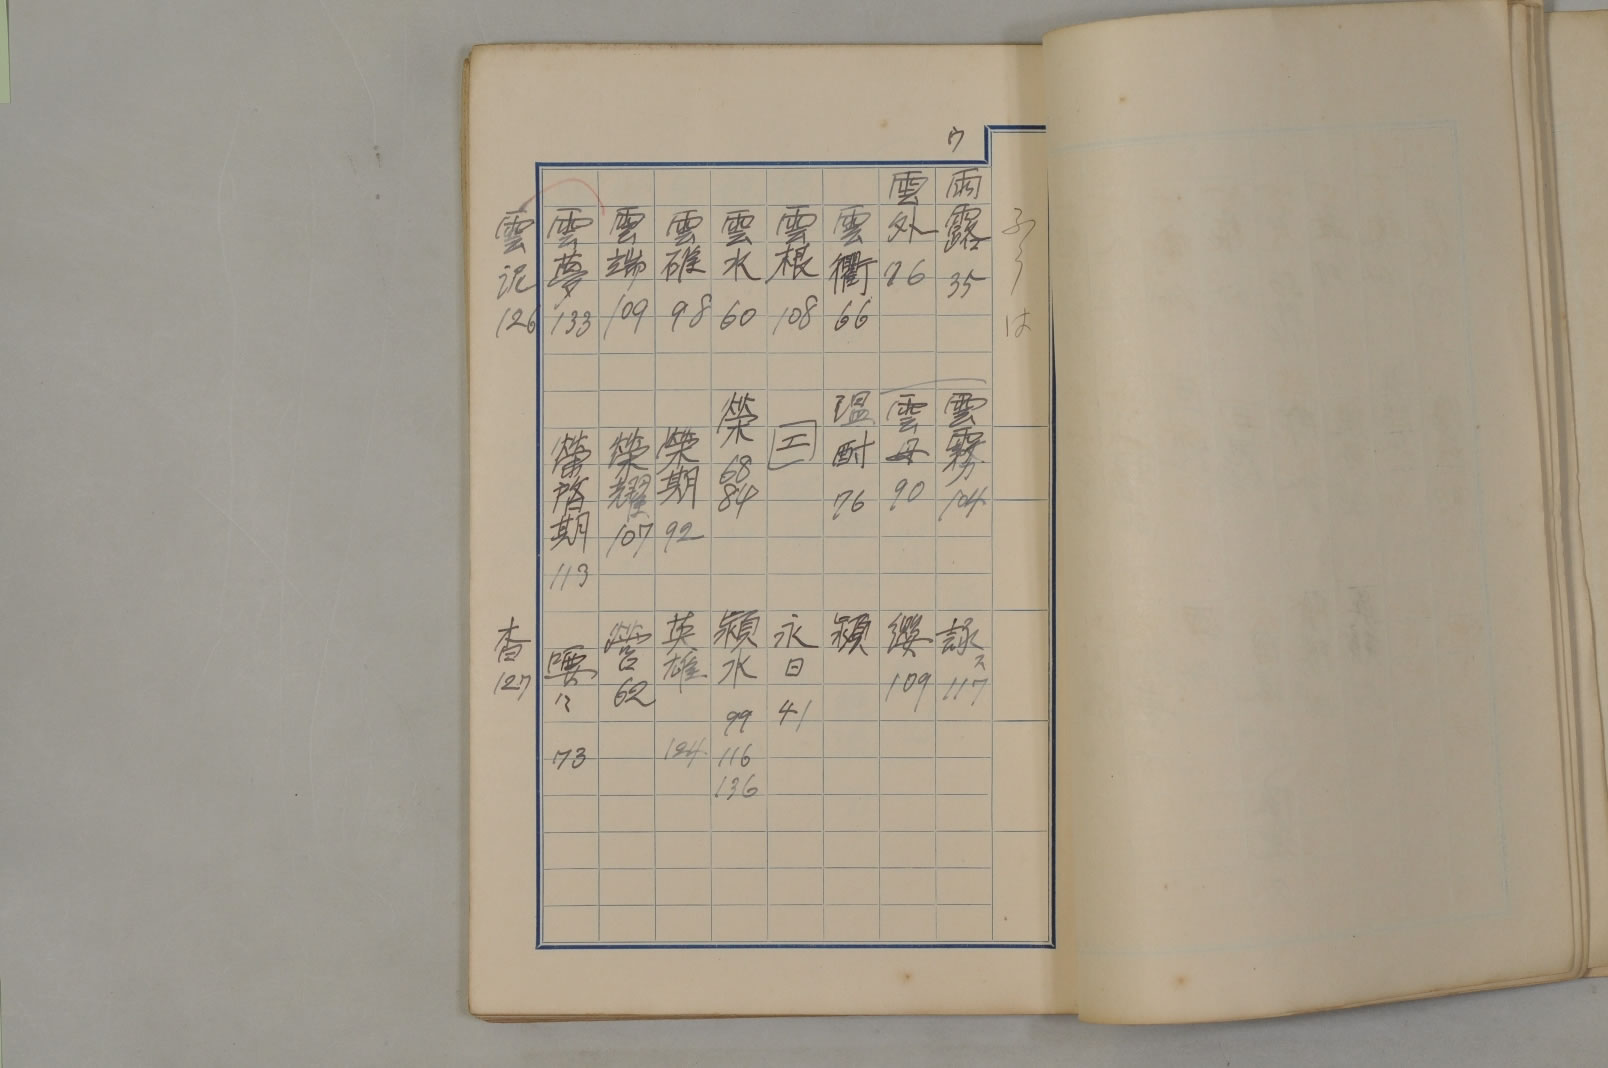 ウ
雨露 35
雲外 76
雲衢 66
雲根 108
雲水 60
雲碓 98
雲端 109
雲夢 133
雲泥 126
雲霧 104
雲母 90
温酎 76
エ
榮 68 84
榮期 92
榮耀 107
榮啓期 113
詠ス 117
纓 109
潁
永日 41
潁水 99 116 136
英雄 124
營 62
嘤々 73
杳 127